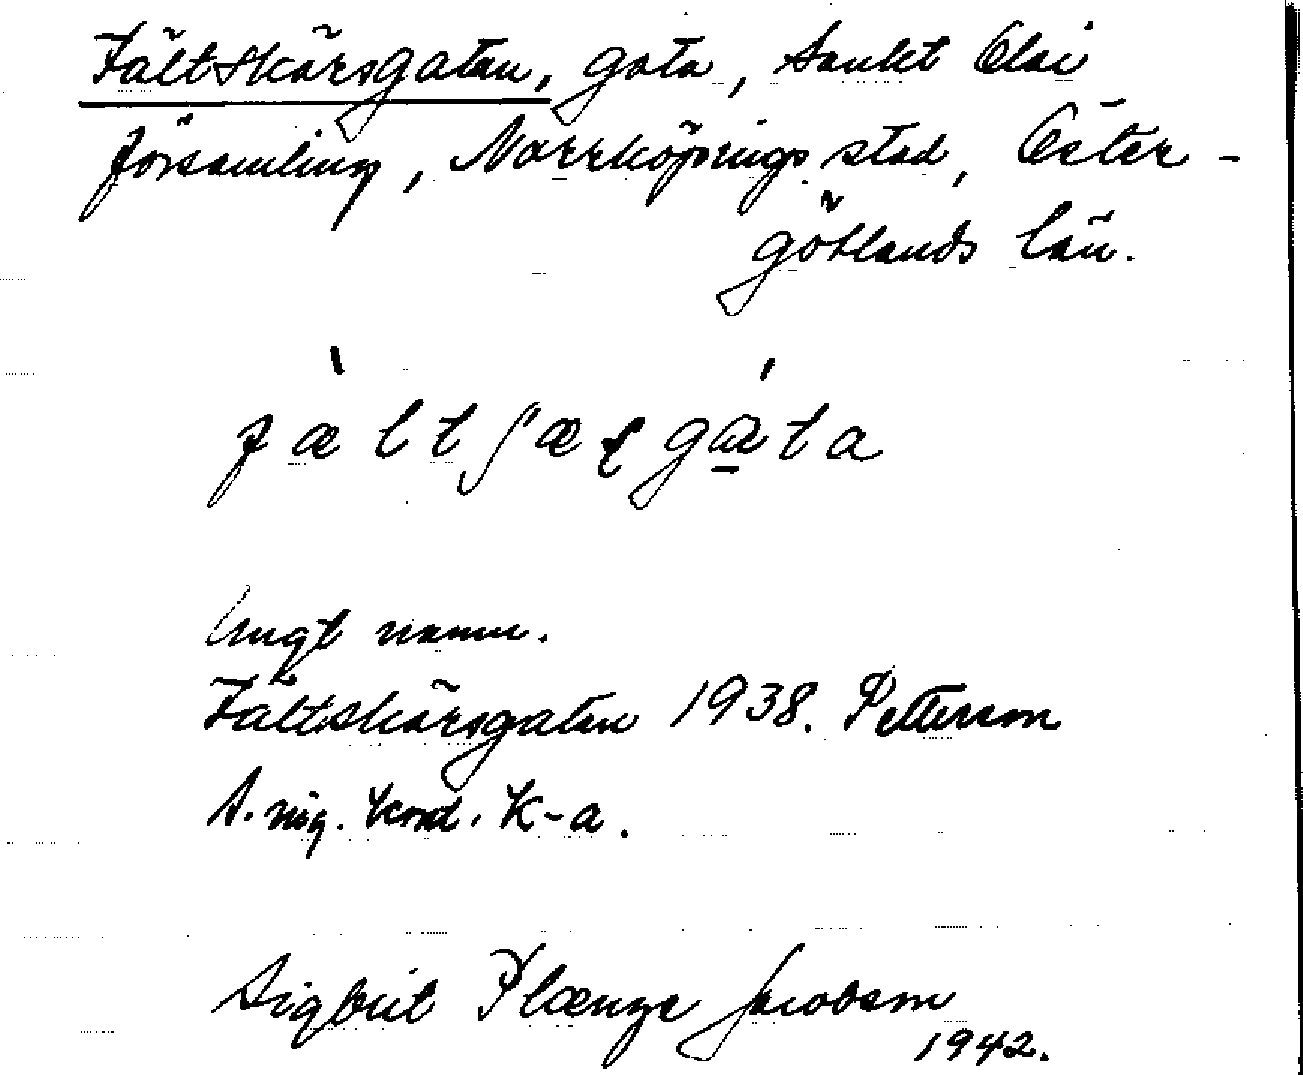 Fältskärsgatan, gata, Sankt Olai
församling, Norrköpings stad, Öster-
götlands län.
fæltʃæṣgata
Ungt namn.
Fältskärsgatan 1938. Petterson
A. nig. kord. K-a.
Sigbrit Plænge Jacobson
1942.